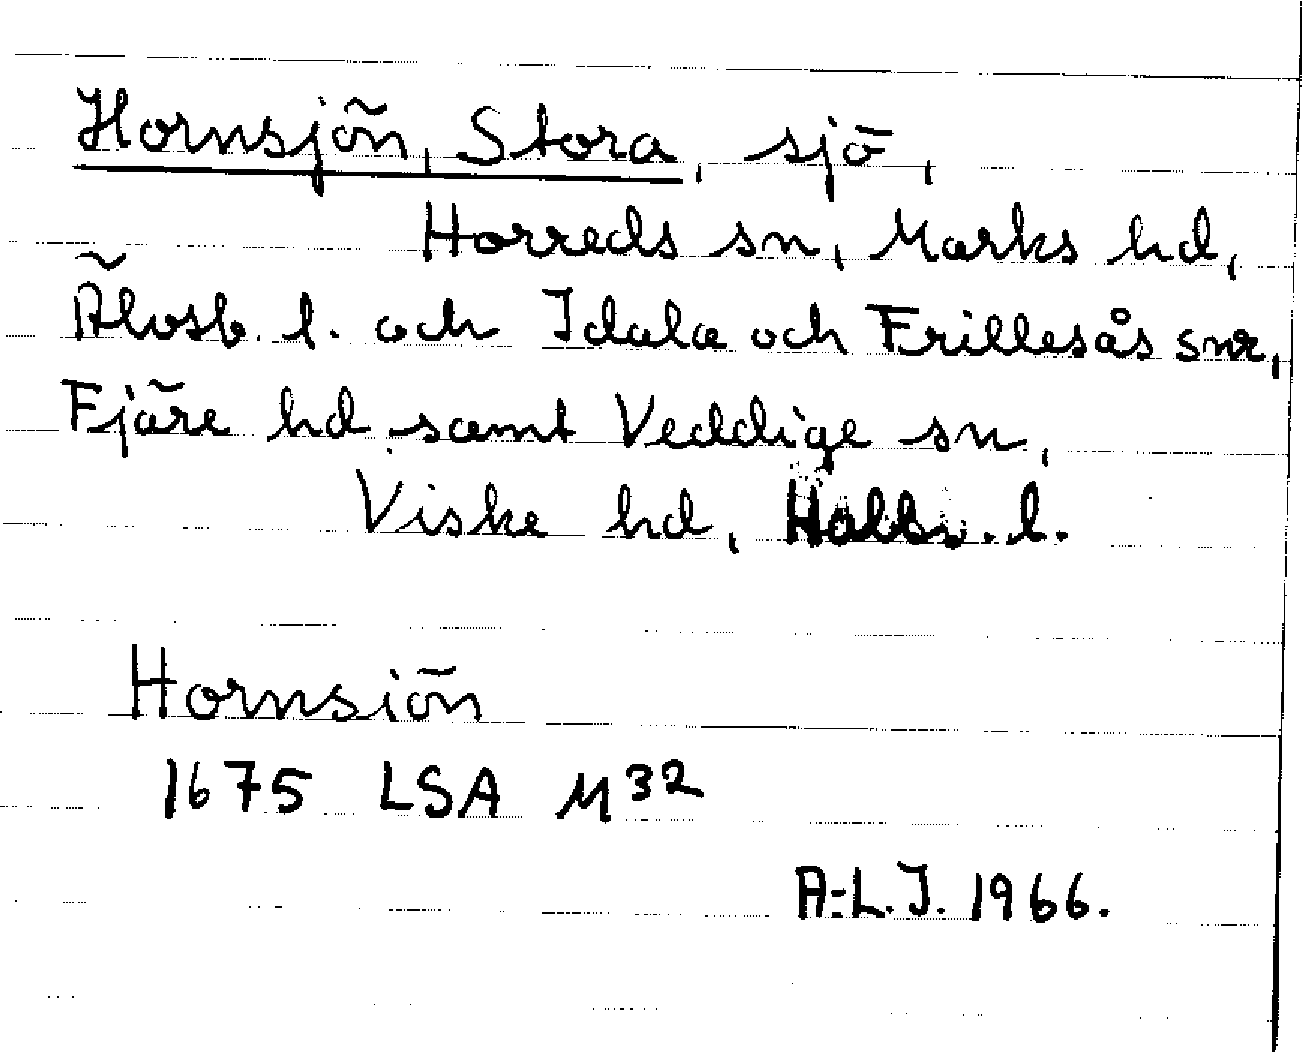 Hornsjön, Stora, sjö,
Horreds sn, Marks hd,
Älvsb. l. och Idala och Frillesås snr,
Fjäre hd samt Veddige sn,
Viske hd, Halls. l.
Hornsiön
1675 LSA M32
A-L.J. 1966.